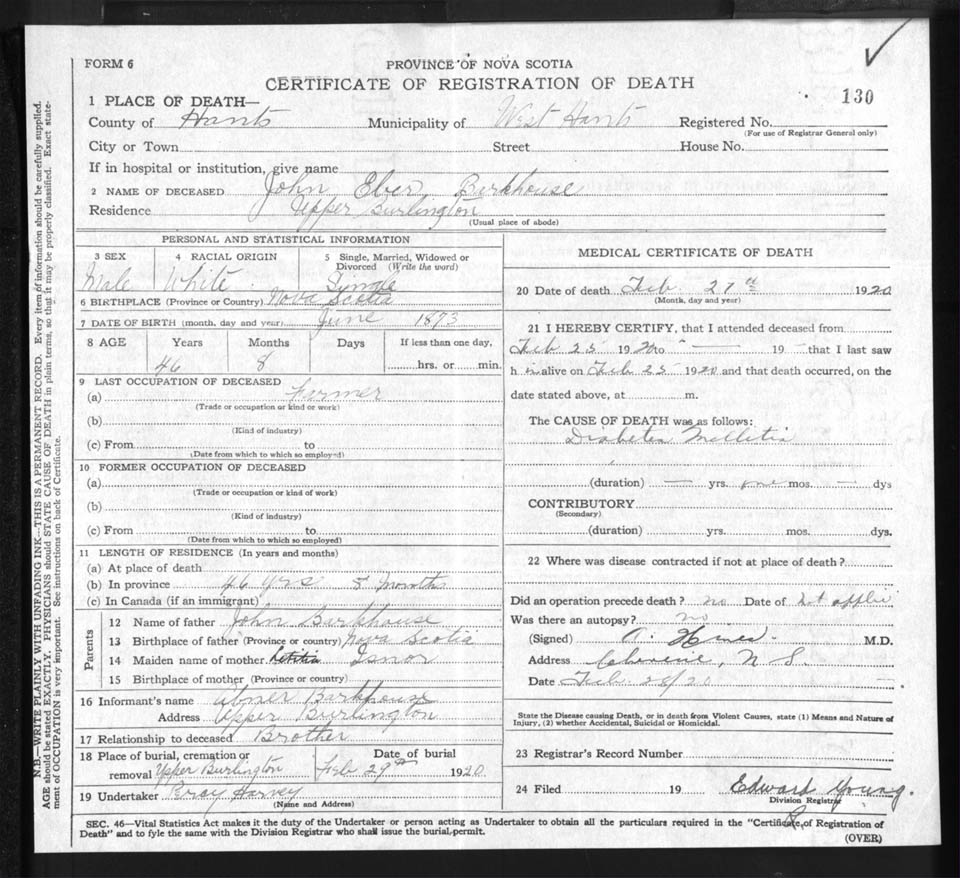 FORM 6
PROVINCE OF NOVA SCOTIA
CERTIFICATE OF REGISTRATION OF DEATH
130
1 PLACE OF DEATH—
County of Hants Municipality of West Hants Registered No.
(For use of Registrar General only)
City or Town Street House No.
If in hospital or institution, give name
2 NAME OF DECEASED John Eber Barkhouse
Residence Upper Burlington
(Usual place of abode)
PERSONAL AND STATISTICAL INFORMATION
3 SEX 4 RACIAL ORIGIN 5 Single, Married, Widowed or Divorced (Write the word)
Male White Single
6 BIRTHPLACE (Province or Country) Nova Scotia
7 DATE OF BIRTH (month, day and year) June 1873
8 AGE Years Months Days If less than one day,
46 8 hrs. or min.
9 LAST OCCUPATION OF DECEASED
(a) Farmer
(Trade or occupation or kind or work)
(b)
(Kind of industry)
(c) From to
(Date from which to which so employed)
10 FORMER OCCUPATION OF DECEASED
(a)
(Trade or occupation or kind of work)
(b)
(Kind of industry)
(c) From to
(Date from which to which so employed)
11 LENGTH OF RESIDENCE (In years and months)
(a) At place of death
(b) In province 46 yrs 8 Months
(c) In Canada (if an immigrant)
Parents
12 Name of father John Barkhouse
13 Birthplace of father (Province or country) Nova Scotia
14 Maiden name of mother Letitia Isnor
15 Birthplace of mother (Province or country)
16 Informant's name Abner Barkhouse
Address Upper Burlington
17 Relationship to deceased Brother
18 Place of burial, cremation or removal Upper Burlington Date of burial Feb 29th 1920
19 Undertaker Harvey
(Name and Address)
MEDICAL CERTIFICATE OF DEATH
20 Date of death Feb. 27th 1920
(Month, day and year)
21 I HEREBY CERTIFY, that I attended deceased from
Feb 25 1920 to " — 19 — that I last saw
h m alive on Feb 25 1920 and that death occurred, on the
date stated above, at m.
The CAUSE OF DEATH was as follows:
Diabetes Mellitis
(duration) — yrs. one mos. — dys
CONTRIBUTORY
(Secondary)
(duration) yrs. mos. dys.
22 Where was disease contracted if not at place of death?
Did an operation precede death? no Date of
Was there an autopsy? no
(Signed) M.D.
Address Cheverie, N S.
Date Feb 28/20
State the Disease causing Death, or in death from Violent Causes, state (1) Means and Nature of
Injury, (2) whether Accidental, Suicidal or Homicidal.
23 Registrar's Record Number
24 Filed 19 Edward Young.
Division Registrar
SEC. 46—Vital Statistics Act makes it the duty of the Undertaker or person acting as Undertaker to obtain all the particulars required in the "Certificate of Registration of
Death" and to fyle the same with the Division Registrar who shall issue the burial permit.
(OVER)
N.B.—WRITE PLAINLY WITH UNFADING INK—THIS IS A PERMANENT RECORD. Every item of information should be carefully supplied.
AGE should be stated EXACTLY. PHYSICIANS should STATE CAUSE OF DEATH in plain terms, so that it may be properly classified. Exact statement of OCCUPATION is very important. See instructions on back of Certificate.